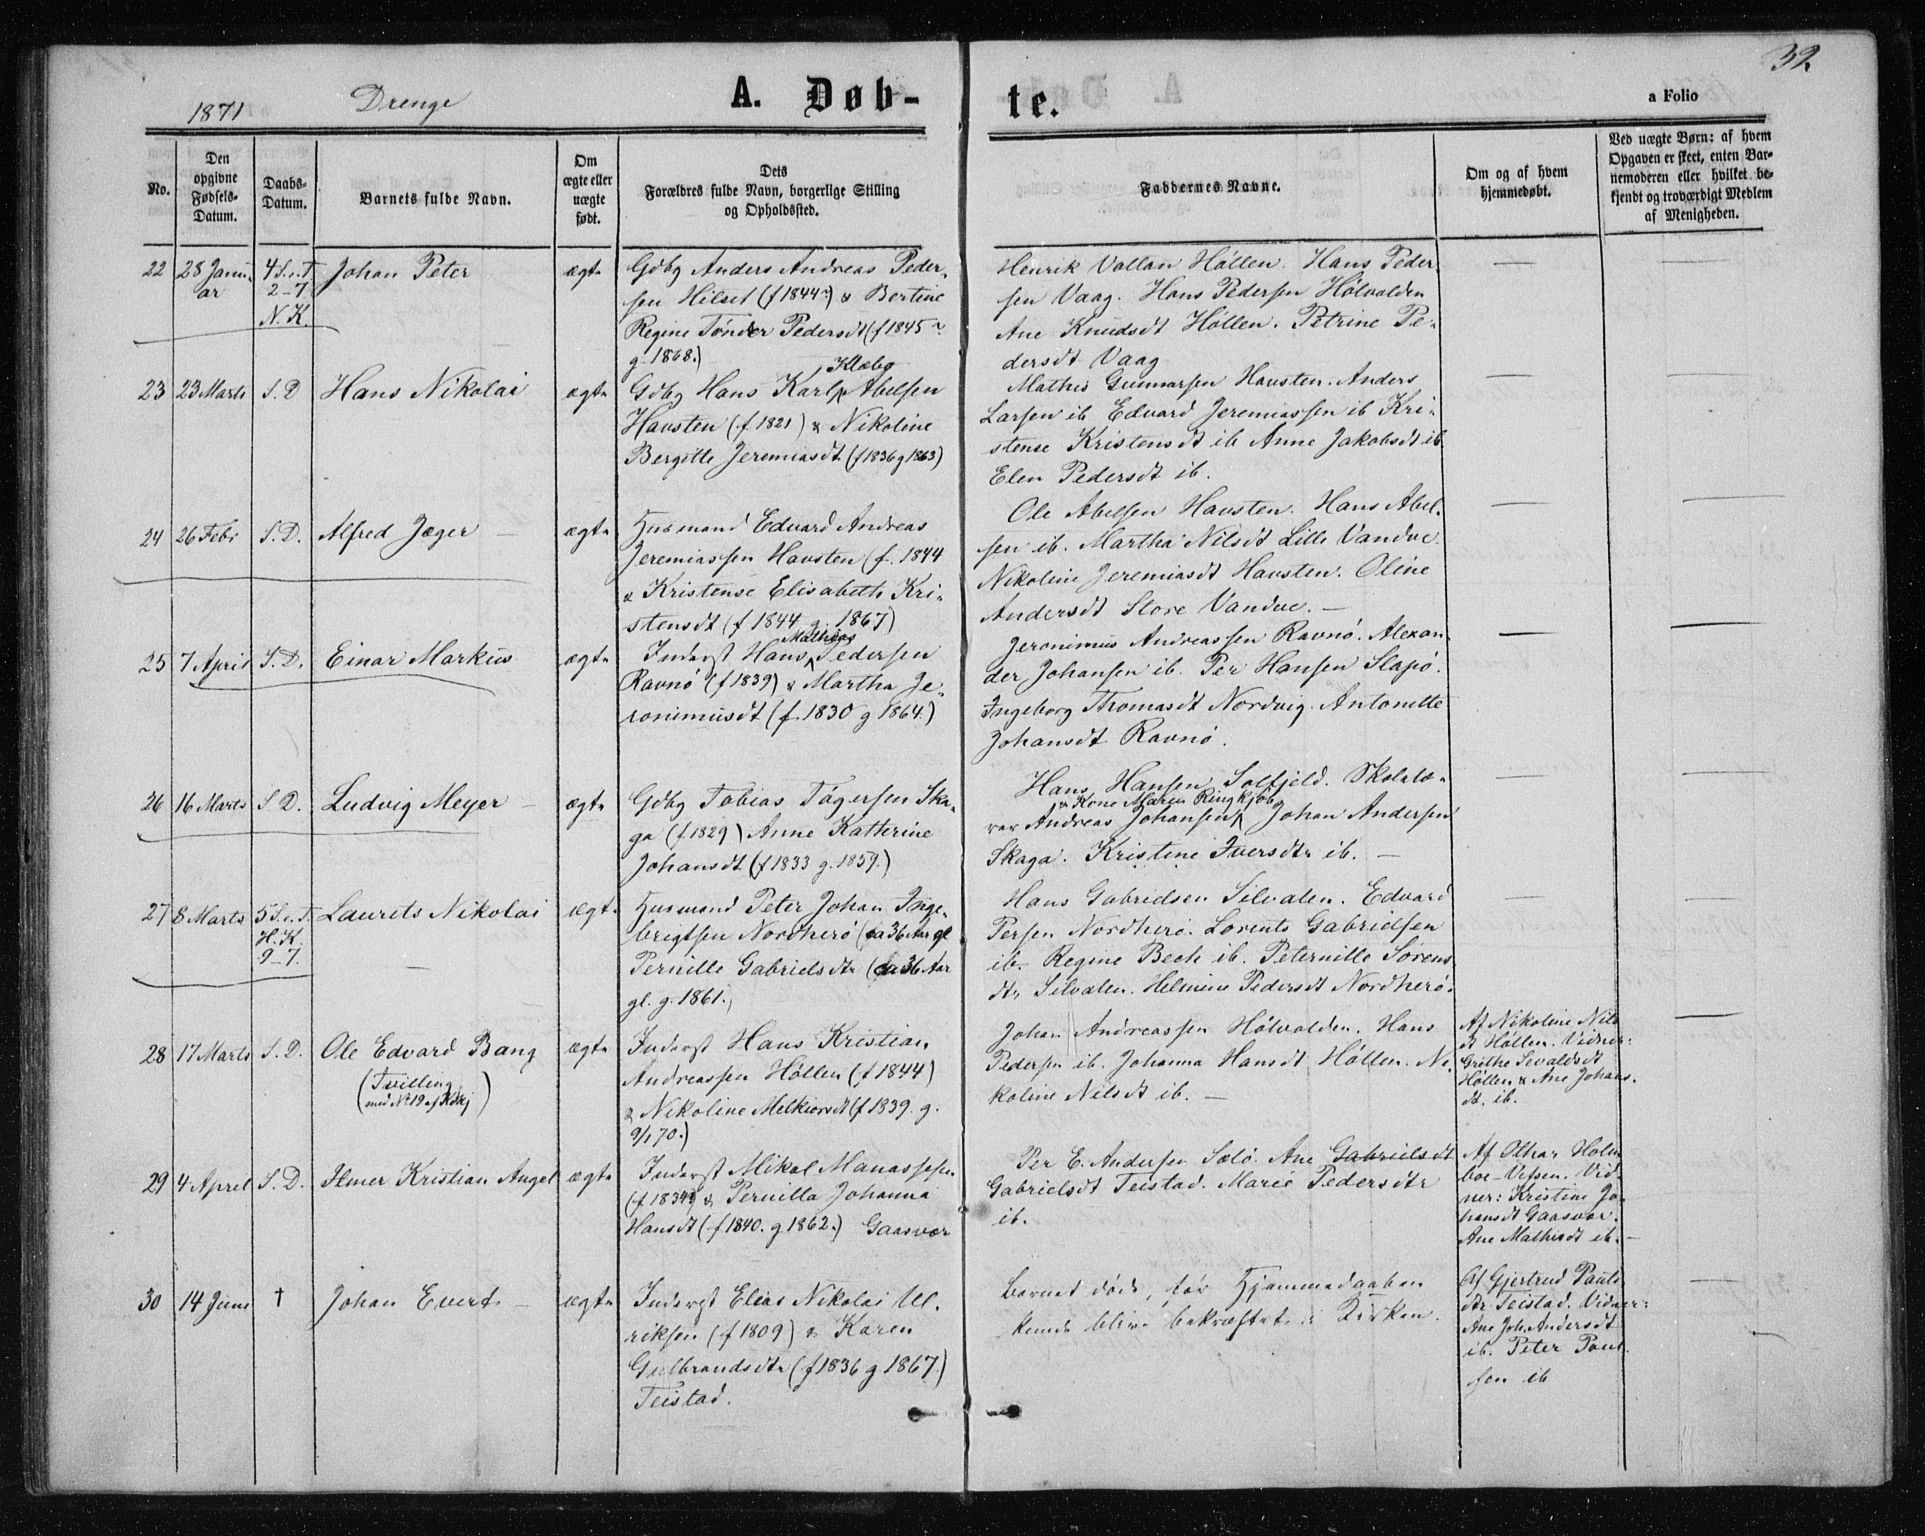 32
1871 Drenge A. Døb-te. a Folio
No.
Den opgivne Fødsels-Datum.
Daabs-Datum.
Barnets fulde Navn.
Om ægte eller uægte født.
Dets
Forældres fulde Navn, borgerlige Stilling
og Opholdssted.
Faddernes Navne.
Om og af hvem
hjemmedøbt.
Ved uægte Børn: af hvem
Opgaven er skeet, enten Bar-
nemoderen eller hvilket be-
kjendt og troværdigt Medlem
af Menigheden.
22 28 Janu-ar 4 S. e. T. 2-7 N. K. Johan Peter ægte
Gdbg Anders Andreas Peder-
sen Hilset (f 1844) & Bertine
Regine Tønder Pedersdt (f 1845
g. 1868.)
Henrik Vallan Høllen. Hans Peder-
sen Vaag. Hans Pedersen Hølvalden
Ane Knudsdt Høllen. Petrine Pe-
dersdt Vaag
23 23 Marts S. D Hans Nikolai ægte
Klæbo
Gdbg Hans Karl Abelsen
Havsten (f 1821) & Nikoline
Bergitte Jeremiasdt (f 1836 g 1863)
Mathis Gunnarsen Havsten. Anders
Larsen ib Edvard Jeremiassen ib Kri-
stense Kristensdt ib Anne Jakobsdt ib
Elen Pedersdt ib.
24 26 Febr S. D. Alfred Jæger ægte
Husmand Edvard Andreas
Jeremiassen Havsten (f. 1844
& Kristense Elisabeth Kri-
stensdt (f 1844 g. 1867)
Ole Abelsen Havsten. Hans Abel-
sen ib. Martha Nilsdt Lille Vandve.
Nikoline Jeremiasdt Havsten. Oline
Andersdt Store Vandve. —
25 7 April S. D. Einar Markus ægte
Mathias
Inderst Hans Pedersen
Ravnø (f 1839) & Martha Je-
ronimusdt (f. 1830 g 1864.)
Jeronimus Andreassen Ravnø. Alexan-
der Johansen ib. Per Hansen Slapø.
Ingeborg Thomasdt Nordvig. Antonette
Johansdt Ravnø.
26 16 Marts S. D. Ludvig Meyer — ægte
Gdbg Tobias Tøgersen Ska-
ga (f. 1829) Anne Katterine
Johansdt (f 1833 g. 1859.)
Hans Hansen Solfjeld. Skolelæ-
& Kone Maren Ringkjøb
rer Andreas Johansen Johan Andersen
Skaga. Kristine Iversdtr ib. —
27 8 Marts 5 S. e. T. H. K. 9-7. Laurits Nikolai ægte
Husmand Peter Johan Inge-
brigtsen Nordherø (ca 36 Aar gl
Pernille Gabrielsdtr (ca 36 Aar
gl. g. 1861.)
Hans Gabrielsen Silvalen. Edvard
Persen Nordherø. Lorents Gabrielsen
ib. Regine Bech ib. Peternille Sørens
dtr Silvalen. Helmine Pedersdt Nordherø.
28 17 Marts S. D. Ole Edvard Bang ægte
(Tvilling
med No 19 af Kvkj)
Inderst Hans Kristian
Andreassen Høllen (f 1844)
& Nikoline Melkiorsdt (f 1839. g.
9/1 70.)
Johan Andreassen Hølvalden. Hans
Pedersen ib. Johanna Hansdt Høllen. Ni-
koline Nilsdt ib. —
Af Nikoline Nils
dt Høllen. Vidner:
Grethe Sevaldsdt
Høllen & Ane Johans-
dt. ib.
29 4 April S. D. Ilmer Kristian Angel ægte
Inderst Mikal Manassesen
(f 1834) & Pernilla Johanna
Hansdt (f 1840. g 1862.) Gaasvær
Per E. Andersen Sælø. Ane Gabrielsdt
Gabrielsdt Teistad. Marie Pedersdtr
ib.
Af Othar Holm
boe - Vefsen. Vid-
ner: Kristine Jo-
hansdt Gaasvær.
Ane Mathisdt ib. —
30 14 Juni † Johan Evert — ægte
Inderst Elias Nikolai Ul-
riksen (f 1809) & Karen
Gulbrandsdtr (f 1836 g 1867.)
Teistad.
Barnet døde, før Hjemmedaaben
kunde blive bekræftet i Kirken.
Af Gjertrud Pauls
dtr Teistad. Vidner:
Ane Joh. Andersdt
ib. Peter Paul-
sen ib